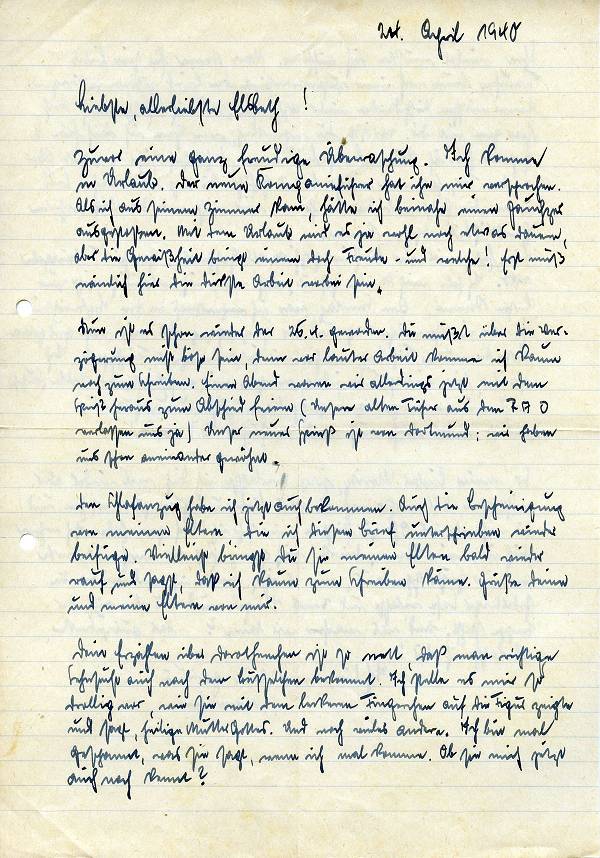 24. April 1940
Liebste, allerliebste Elsbeth !
Zuvor eine ganz freudige Überraschung. Ich komme
in Urlaub. Der neue Kompanieführer hat ihn mir versprochen.
Als ich aus seinem Zimmer kam, hätte ich beinahe einen Jauchzer
ausgestossen. Mit dem Urlaub wird es ja wohl noch etwas dauern,
aber die Gewißheit bringt einem doch Freude - und welche! Erst muß
nämlich hier die dickste Arbeit vorbei sein.
Nun ist es schon wieder der 26.4. geworden. Du mußt über die Ver-
zögerung nicht böse sein, denn vor lauter Arbeit komme ich kaum
noch zum Schreiben. Einen Abend waren wir allerdings jetzt mit dem
Spieß heraus zum Abschied feiern (Unsere alten
verlassen uns ja) Unser neuer Spieß ist von Dortmund; wir haben
uns schon aneinander gewöhnt.
Den Schlafanzug habe ich jetzt auch bekommen. Auch die Bescheinigung
von meinen Eltern die ich diesem Brief unterschrieben wieder
beifüge. Vielleicht bringst Du sie meinen Eltern bald wieder
rauf und sagst, daß ich kaum zum Schreiben käme. Grüße deine
und meine Eltern von mir.
Dein Erzählen über Dorotheechen ist so nett, daß man richtige
Sehnsucht auch nach dem bekommt. Ich stelle es mir so
drollig vor, wie sie mit dem leckeren Fingerchen auf die Figur zeigte
und sagt, heilige Mutter Gottes. Und noch vieles andere. Ich bin mal
gespannt, was sie sagt, wenn ich mal komme. Ob sie mich jetzt
auch noch kennt?